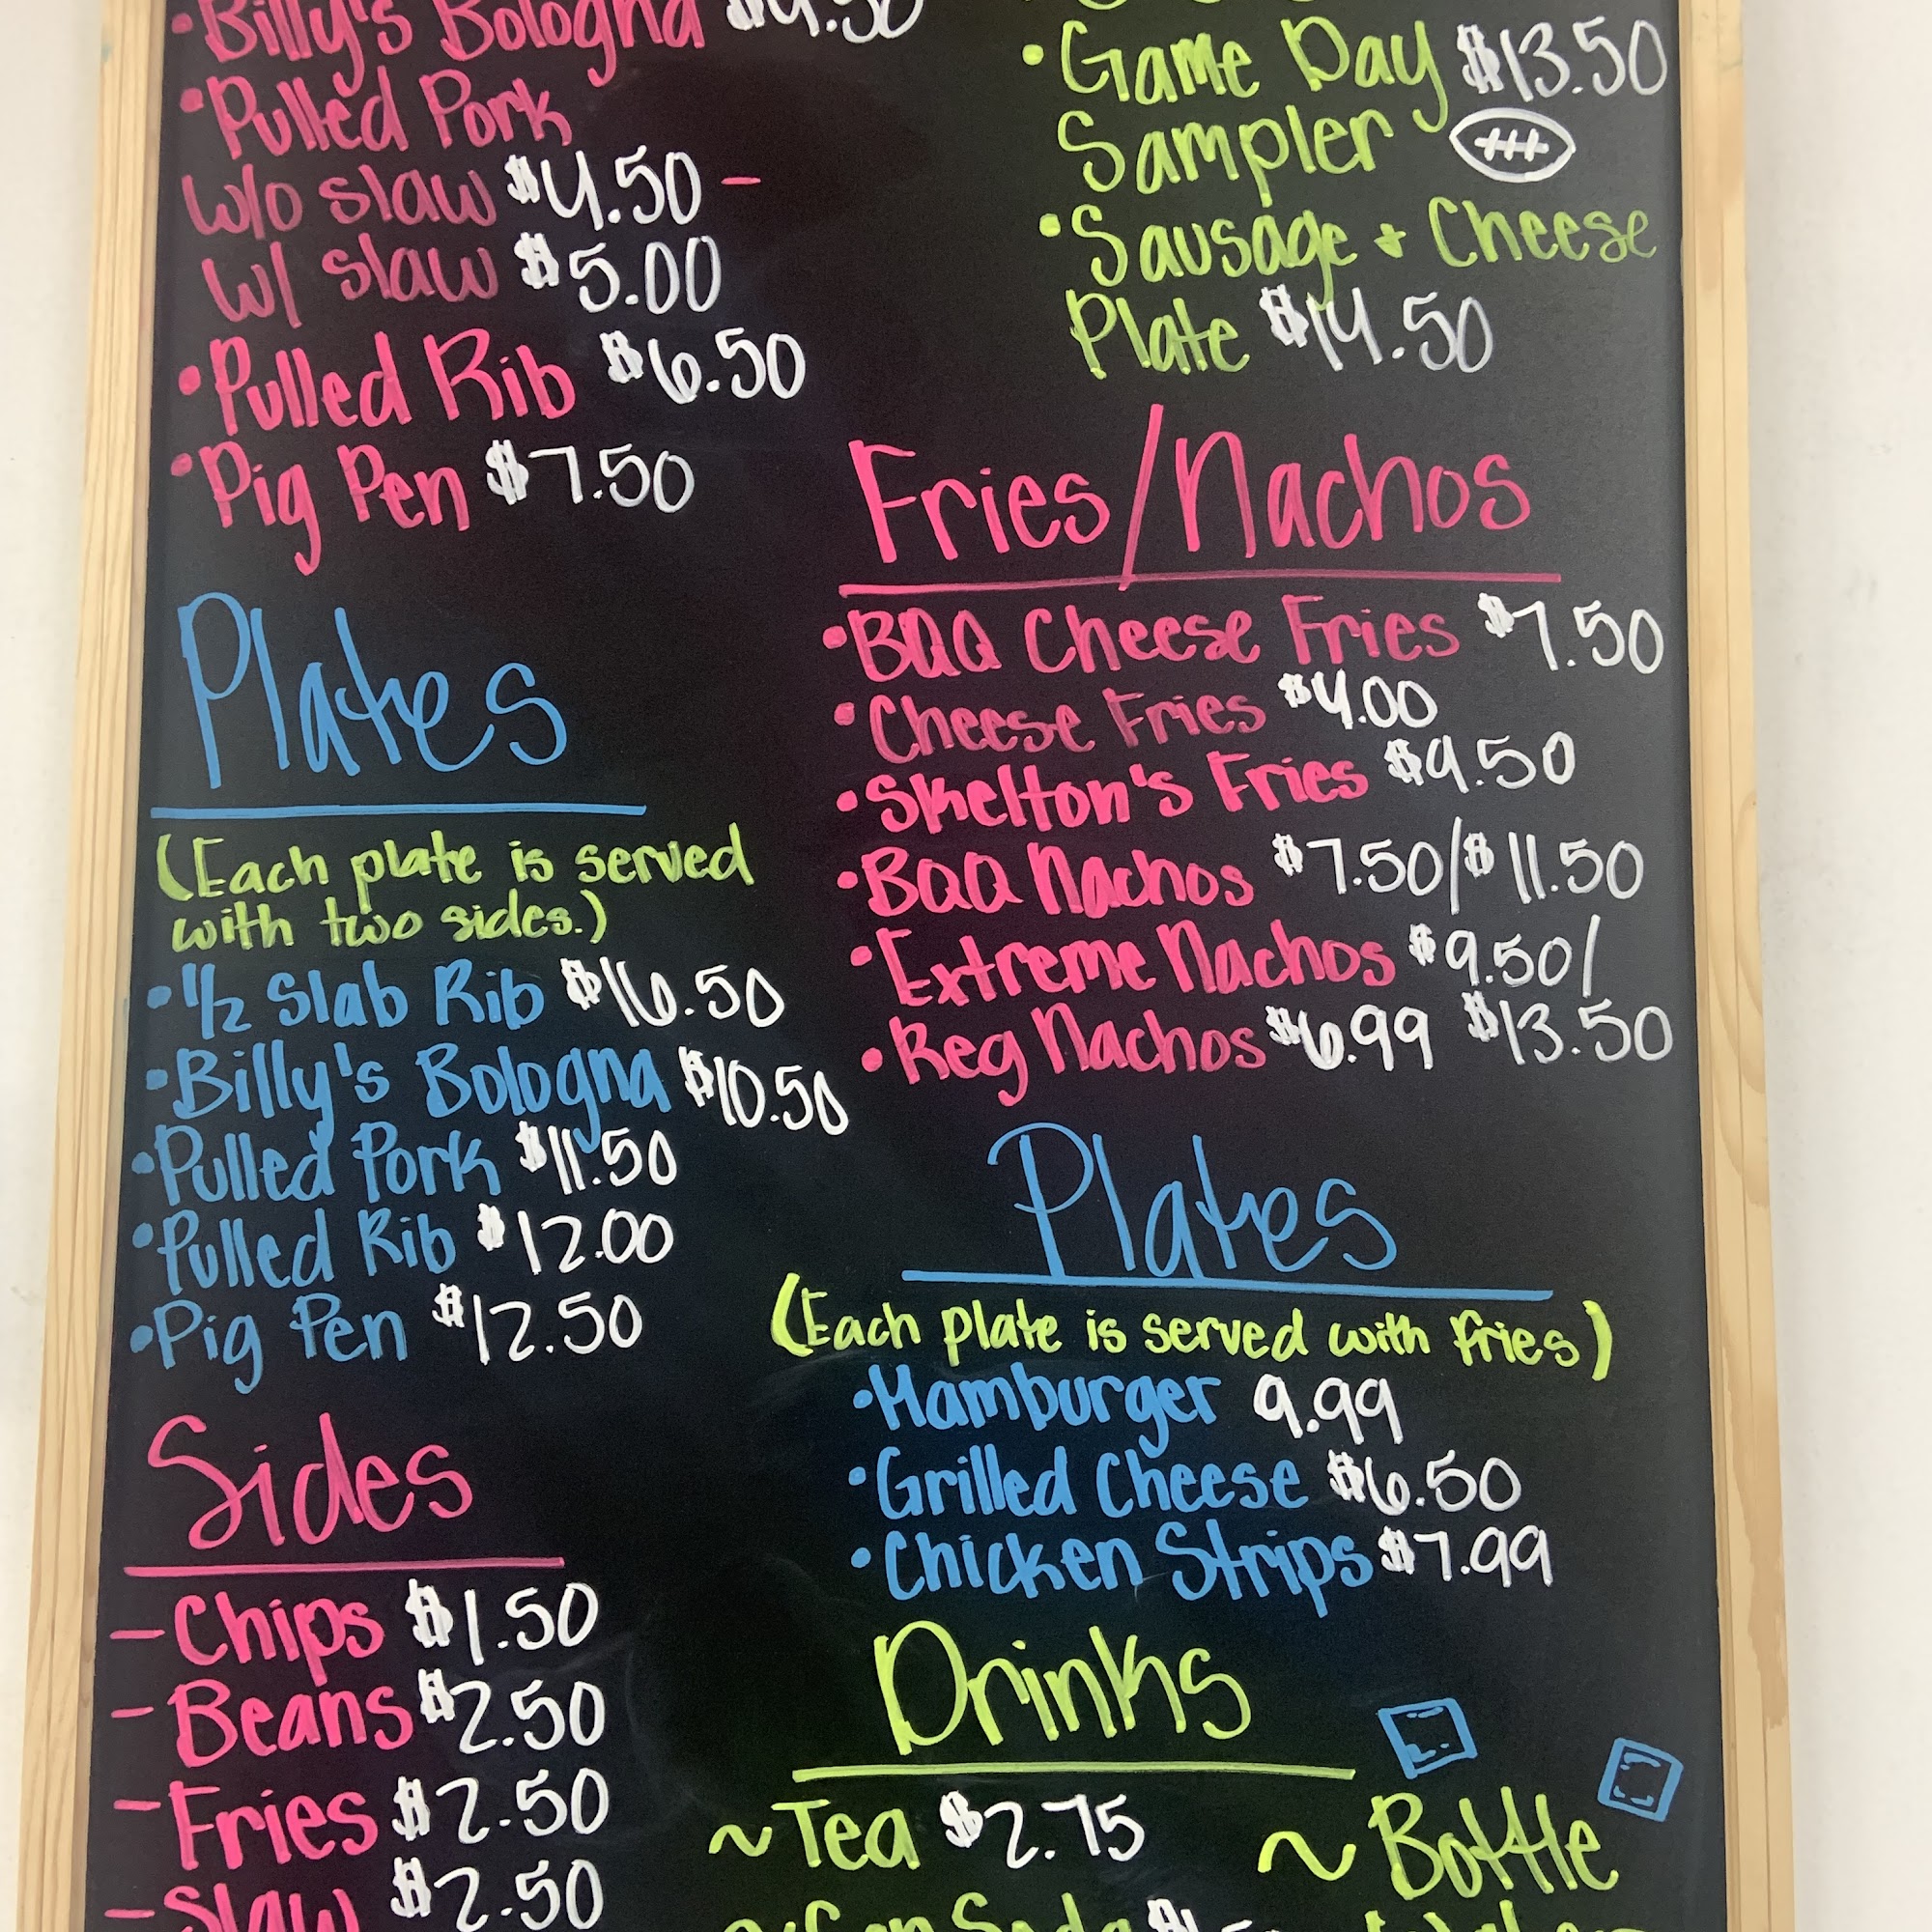 •Billy's Bologna $4.50
•Pulled Pork
w/o slaw $4.50 -
w/ slaw $5.00
•Pulled Rib $6.50
•Pig Pen $7.50
Plates
(Each plate is served
with two sides.)
•1/2 Slab Rib $16.50
•Billy's Bologna $10.50
•Pulled Pork $11.50
•Pulled Rib $12.00
•Pig Pen $12.50
Sides
-Chips $1.50
-Beans $2.50
-Fries $2.50
-Slaw $2.50
•Game Day $13.50
Sampler
•Sausage + Cheese
Plate $14.50
Fries/Nachos
•BQQ Cheese Fries $7.50
•Cheese Fries $4.00
•Skelton's Fries $9.50
•BQQ Nachos $7.50/$11.50
•Extreme Nachos $9.50/
•Reg Nachos $6.99 $13.50
Plates
(Each plate is served with fries)
•Hamburger 9.99
•Grilled Cheese $6.50
•Chicken Strips $7.99
Drinks
~Tea $2.75 ~Bottle
Can Soda